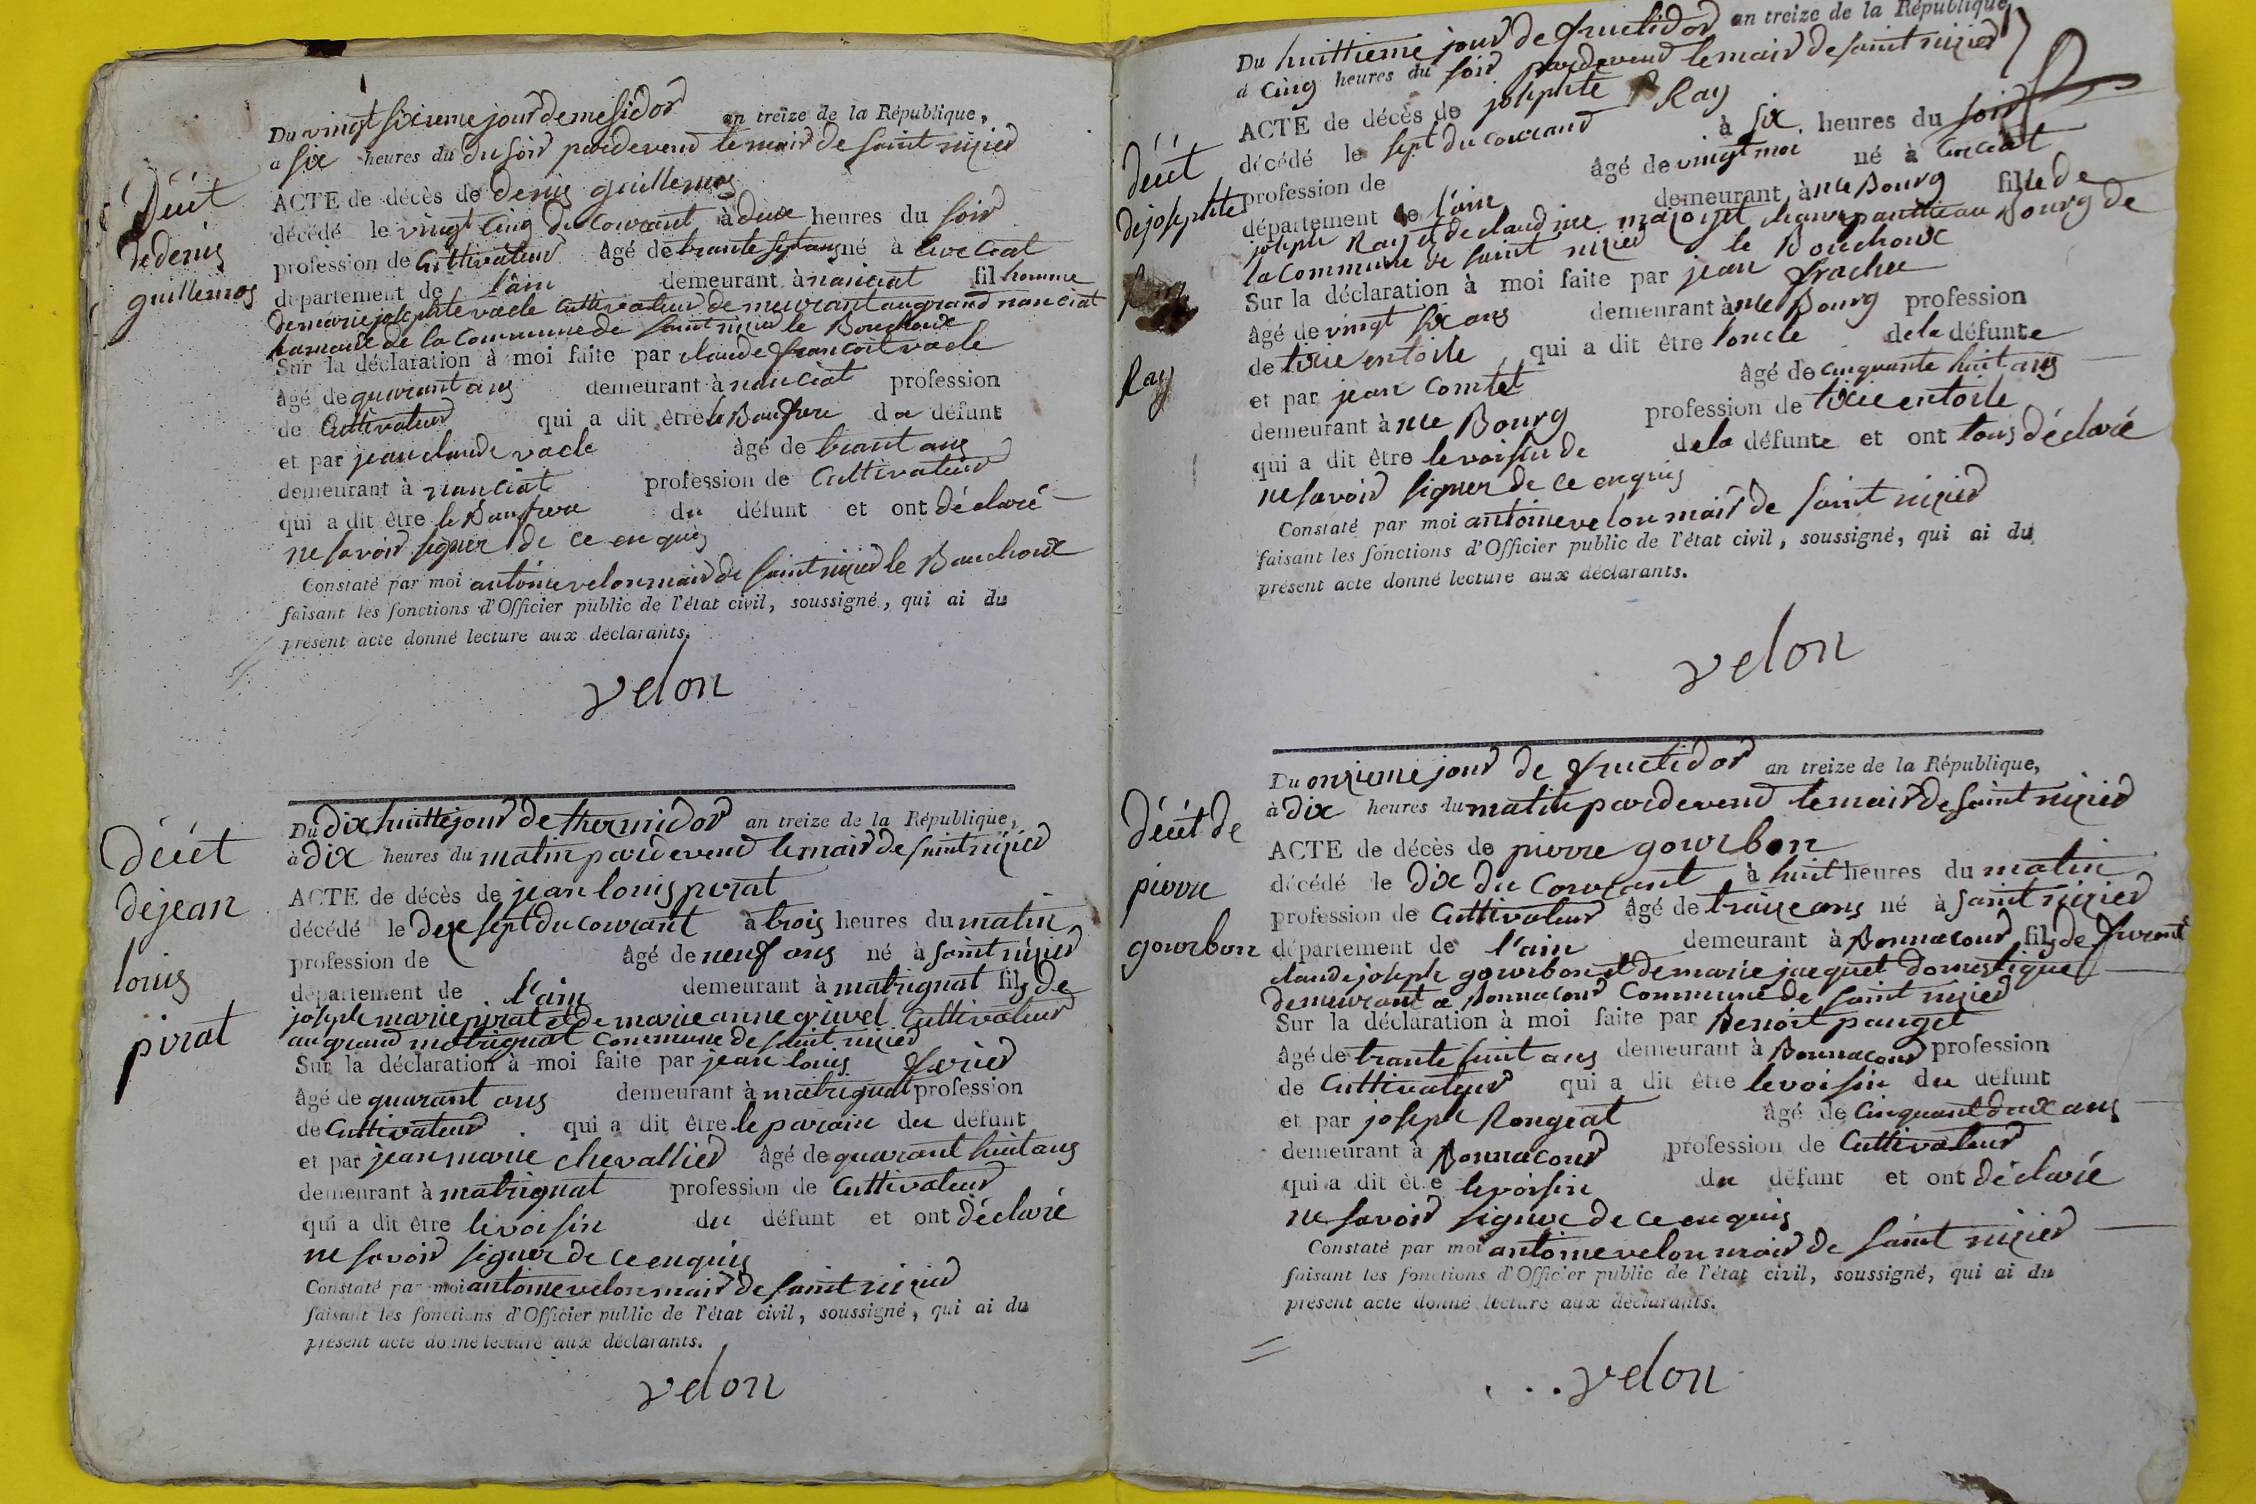 Décét
de denis
guillemos
Du vingt sixieme jour de mesidor an treize de la République,
à six heures du du soir pardevend le mair de saint nizier
ACTE de décès de denis guillemos
décédé le vingt cinq du courant à deux heures du soir
profession de Cultivateur âgé de trante sept ans né à
département de l'ain demeurant à nanciat fil homme
de marie josephte vacle Cultivateur demeurant au grand nanciat
hamaux de la Commune de saint nizier le Bouchoux
Sur la déclaration à moi faite par claude francoit vacle
âgé de quarant ans demeurant à nanciat profession
de Cultivateur qui a dit être le Baufrere du défunt
et par jean claude vacle âgé de trant ans
demeurant à nanciat profession de Cultivateur
qui a dit être le Baufrere du défunt et ont déclaré
ne savoir signer de ce enquis
Constaté par moi antoine velon mair de saint nizier le Bouchoux
faisant les fonctions d'Officier public de l'état civil, soussigné, qui ai du
présent acte donné lecture aux déclarants.
velon
Décét
de jean
louis
pirat
Du dix huitte jour de thermidor an treize de la République,
à dix heures du matin pardevend le mair de saint nizier
ACTE de décès de jean louis pirat
décédé le dix sept du courant à trois heures du matin
profession de âgé de neuf ans né à saint nizier
département de l'ain demeurant à matrignat fils de
joseph marie pirat et de marie anne grivel Cultivateur
au grand matrignat Commune de saint nizier
Sur la déclaration à moi faite par jean louis
âgé de quarant ans demeurant à matrignat profession
de Cultivateur qui a dit être le parain du défunt
et par jean marie chevallier âgé de quarant huit ans
demeurant à matrignat profession de Cultivateur
qui a dit être le voisin du défunt et ont déclaré
ne savoir signer de ce enquis
Constaté par moi antoine velon mair de saint nizier
faisant les fonctions d'Officier public de l'état civil, soussigné, qui ai du
présent acte donné lecture aux déclarants.
velon
Décét
de josephte
Ray
Du huittieme jour de fructidor an treize de la République
à cinq heures du soir pardevend le mair de saint nizier
ACTE de décès de josephte Ray
décédé le sept du courand à six heures du soir
profession de âgé de vingt moi né à
département de l'ain demeurant à ne Bourg fille de
joseph Ray et de claudine au Bourg de
la Commune de saint nizier le Bouchoux
Sur la déclaration à moi faite par jean frachee
âgé de vingt six ans demeurant à ne Bourg profession
de tixie en toile qui a dit être loncle de la défunte
et par jean comtet âgé de cinquante huit ans
demeurant à ne Bourg profession de tixie en toile
qui a dit être le voisin de de la défunte et ont tous déclaré
ne savoir signer de ce enquis
Constaté par moi antoine velon mair de saint nizier
faisant les fonctions d'Officier public de l'état civil, soussigné, qui ai du
présent acte donné lecture aux déclarants.
velon
Décét de
pierre
gourbon
Du onzieme jour de fructidor an treize de la République,
à dix heures du matin pardevend le mair de saint nizier
ACTE de décès de pierre gourbon
décédé le dix du Courant à huit heures du matin
profession de Cultivateur âgé de traize ans né à saint nizier
département de l'ain demeurant à Bonnacour fils de
claude joseph gourbon et de marie jacquet domestique
demeurant a Bonnacour Commune de saint nizier
Sur la déclaration à moi faite par Benoit panget
âgé de trante huit ans demeurant à Bonnacour profession
de Cultivateur qui a dit être le voisin du défunt
et par joseph Rongeat âgé de cinquant deux ans
demeurant à Bonnacour profession de Cultivateur
qui a dit être le voisin du défunt et ont déclaré
ne savoir signer de ce enquis
Constaté par moi antoine velon mair de saint nizier
faisant les fonctions d'Officier public de l'état civil, soussigné, qui ai du
présent acte donné lecture aux déclarants.
velon